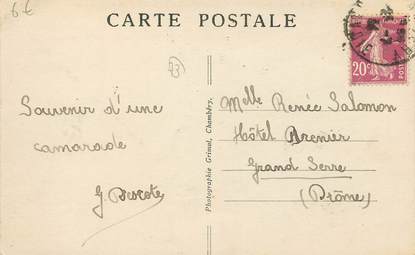 6€
CARTE POSTALE
20c
Souvenir d'une
camarade
Photographie Grimal, Chambéry.
Melle Renée Salomon
Hôtel
Grand Serre
(Drôme)